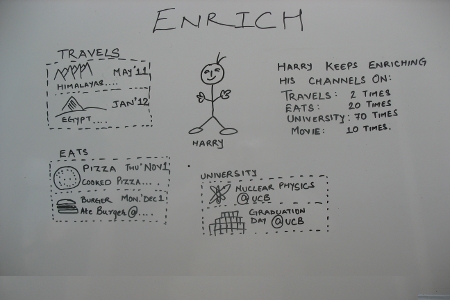 ENRICH
TRAVELS
MAY'11
HIMALAYAS....
JAN'12
EGYPT....
HARRY
HARRY KEEPS ENRICHING
HIS CHANNELS ON:
TRAVELS: 2 TIMES
EATS: 20 TIMES
UNIVERSITY: 70 TIMES
MOVIE: 10 TIMES.
EATS
PIZZA THU'NOV1
COOKED PIZZA....
BURGER MON,'DEC1
Ate BURGER @....
UNIVERSITY
NUCLEAR PHYSICS
@UCB
GRADUATION
DAY @UCB